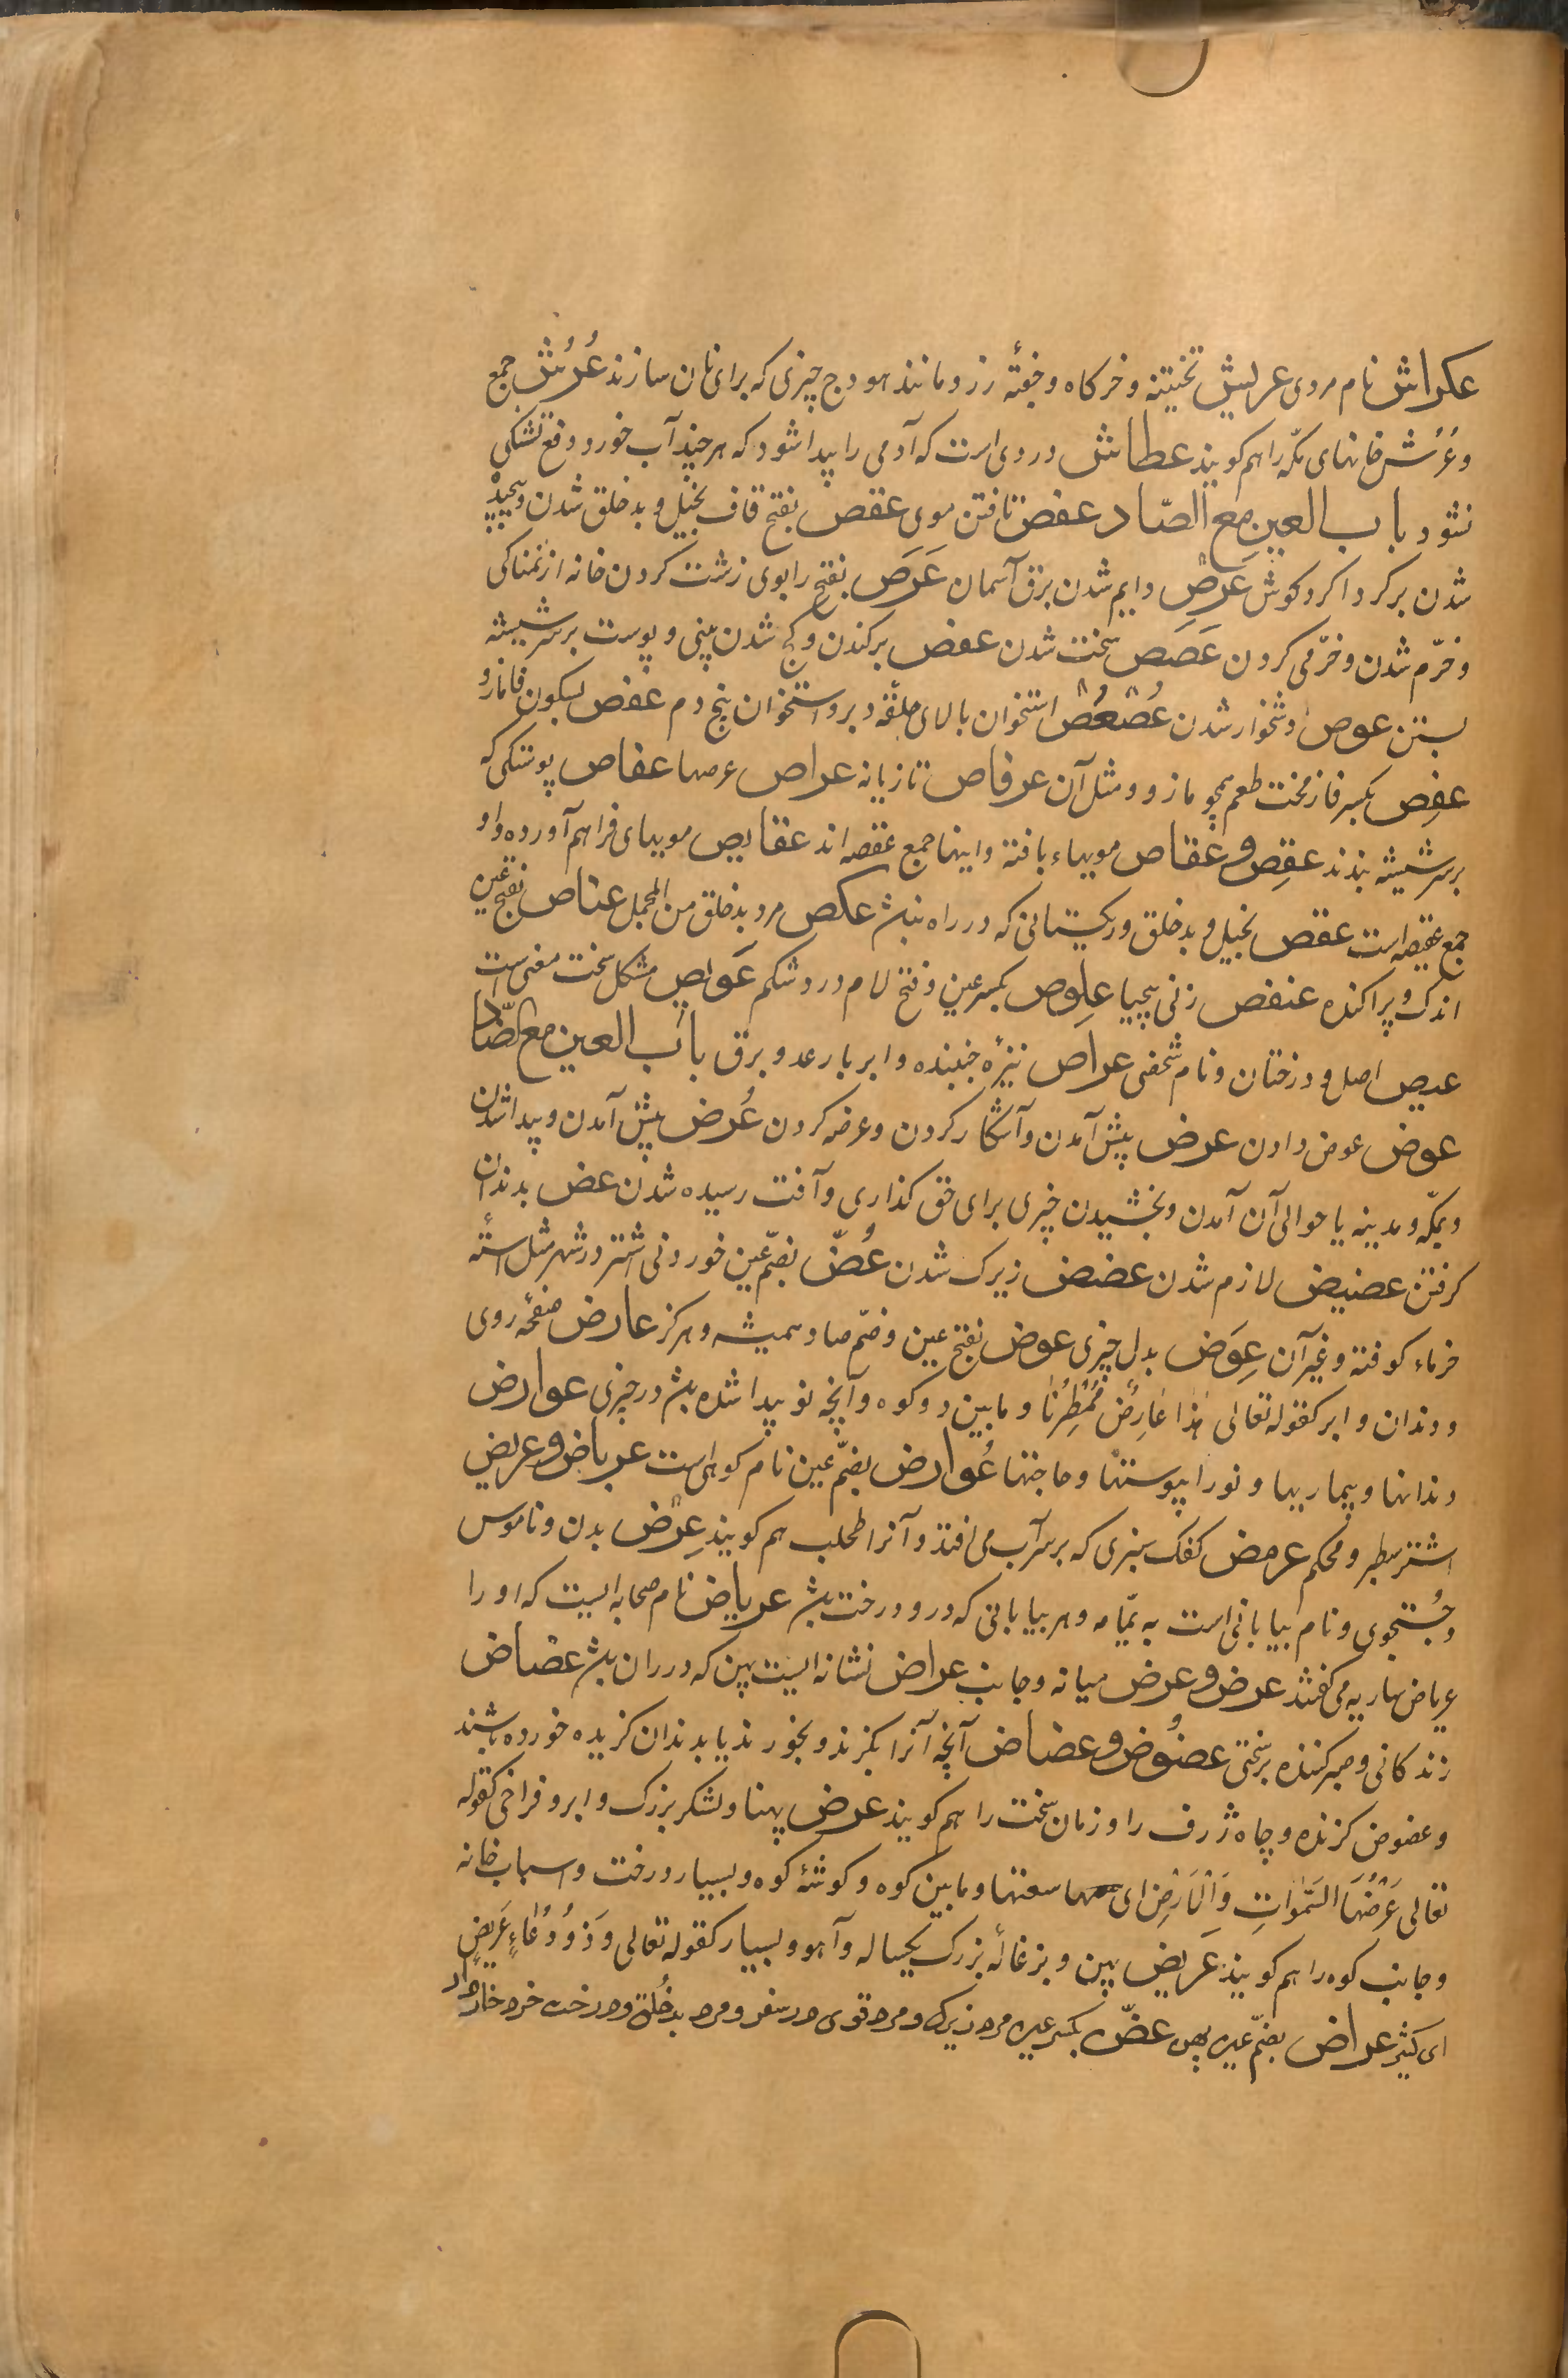 عکراش نام مردی عریش تختینه و خرکاه و خبثهٔ رز و مانند هودج چیزی که برای زنان سازند عُرُش جمع
و عُرُش خانهای مکّه را هم کویند عطاش دردی است که آدمی را پیدا شود که هر چند آب خورد دفع تشنکی
نشود باب العین مع الصّاد عفص تافتن موی عقص بفتح قاف بخیل و بدخلق شدن و پیچیده
شدن بر کرداکرد کوش عرص دایم شدن برق آسمان عَرَص بفتح را بوی زشت کردن خانه از نمناکی
و خرّم شدن و خرّمی کردن عَصَص سخت شدن عفص برکندن و کج شدن بینی و پوست بر سر شیشه
بستن عوص دشخوار شدن عُصْعُص استخوان بالای حلقهٔ دبر و استخوان بیخ دم عفص بسکون فا مازو
عفِص بکسر فا زمخت طعم همچو مازو و مثل آن عرفاص تازیانه عراص عرصها عفاص پوستکی که
بر سر شیشه بندند عقِص و عقاص مویهاء بافته و اینها جمع عقصه اند عقایص مویهای فراهم آورده و او
جمع عقیصه است عقص بخیل و بدخلق و ریکستانی که در راه نباشد عکص مرد بدخلق من المجمل عناص بفتح عین
اندک و پراکنده عنفص زنی بیحیا علوص بکسر عین و فتح لام درد شکم عَویص مشکل سخت معنی است
عیص اصل و درختان و نام شخصی عراص نیزهٔ جنبنده و ابر با رعد و برق باب العین مع الضّاد
عوض عوض دادن عرض پیش آمدن و آشکار کردن و عرضه کردن عُرض پیش آمدن و پیدا شدن
و بمکّه و مدینه یا حوالی آن آمدن و بخشیدن چیزی برای حق کذاری و آفت رسیده شدن عض بدندان
کرفتن عضیض لازم شدن عضض زیرک شدن عُضّ بضمّ عین خوردنی اشتر در شهر مثل استهٔ
خرماء کوفته و غیر آن عِوَض بدل چیزی عوض بفتح عین و ضمّ ضاد همیشه و هرکز عارض صفحهٔ روی
و دندان و ابر کقوله تعالی هٰذا عَارِضٌ مُمْطِرُنَا و مابین دو کوه و آنچه نو پیدا شده باشد در چیزی عوارض
دندانها و بیماریها و نورا پیوستها و حاجتها عُوارض بضمّ عین نام کوهی است عرباض و عریض
اشتر سطبر و محکم عرمض کفک سبزی که بر سر آب می افتد و آنرا طحلب هم کویند عِرْض بدن و ناموس
و جُستجوی و نام بیابانی است به یمامه و هر بیابانی که درو درخت باشد عریاض نام صحابه ایست که او را
عریاض ساریه می کفتند عرض و عرض میانه و جانب عراض نشانه ایست پهن که در ران باشد عضاض
زندکانی و صبر کننده بر سختی عضُوض و عضاض آنچه آنرا بکزند و بخورند یا بدندان کزیده خورده باشند
و عضوض کزنده و چاه ژرف را و زمان سخت را هم کویند عرض پهنا و لشکر بزرک و ابر و فراخی کقوله
تعالی عَرْضُهَا السَّمٰوَاتِ وَالْاَرْضِ ای سعتها و مابین کوه و کوشهٔ کوه و بسیار درخت و اسباب خانه
و جانب کوه را هم کویند عَریض پهن و بزغالهٔ بزرک یکساله و آهو و بسیار کقوله تعالی وَذُو دُعَاءٍ عَرِیضٍ
ای کثیر عراض بضمّ عین پهن عضّ بکسر عین مرد زیرک و مرد قوی در سفر و مرد بدخُلق و درخت خرد خاردار